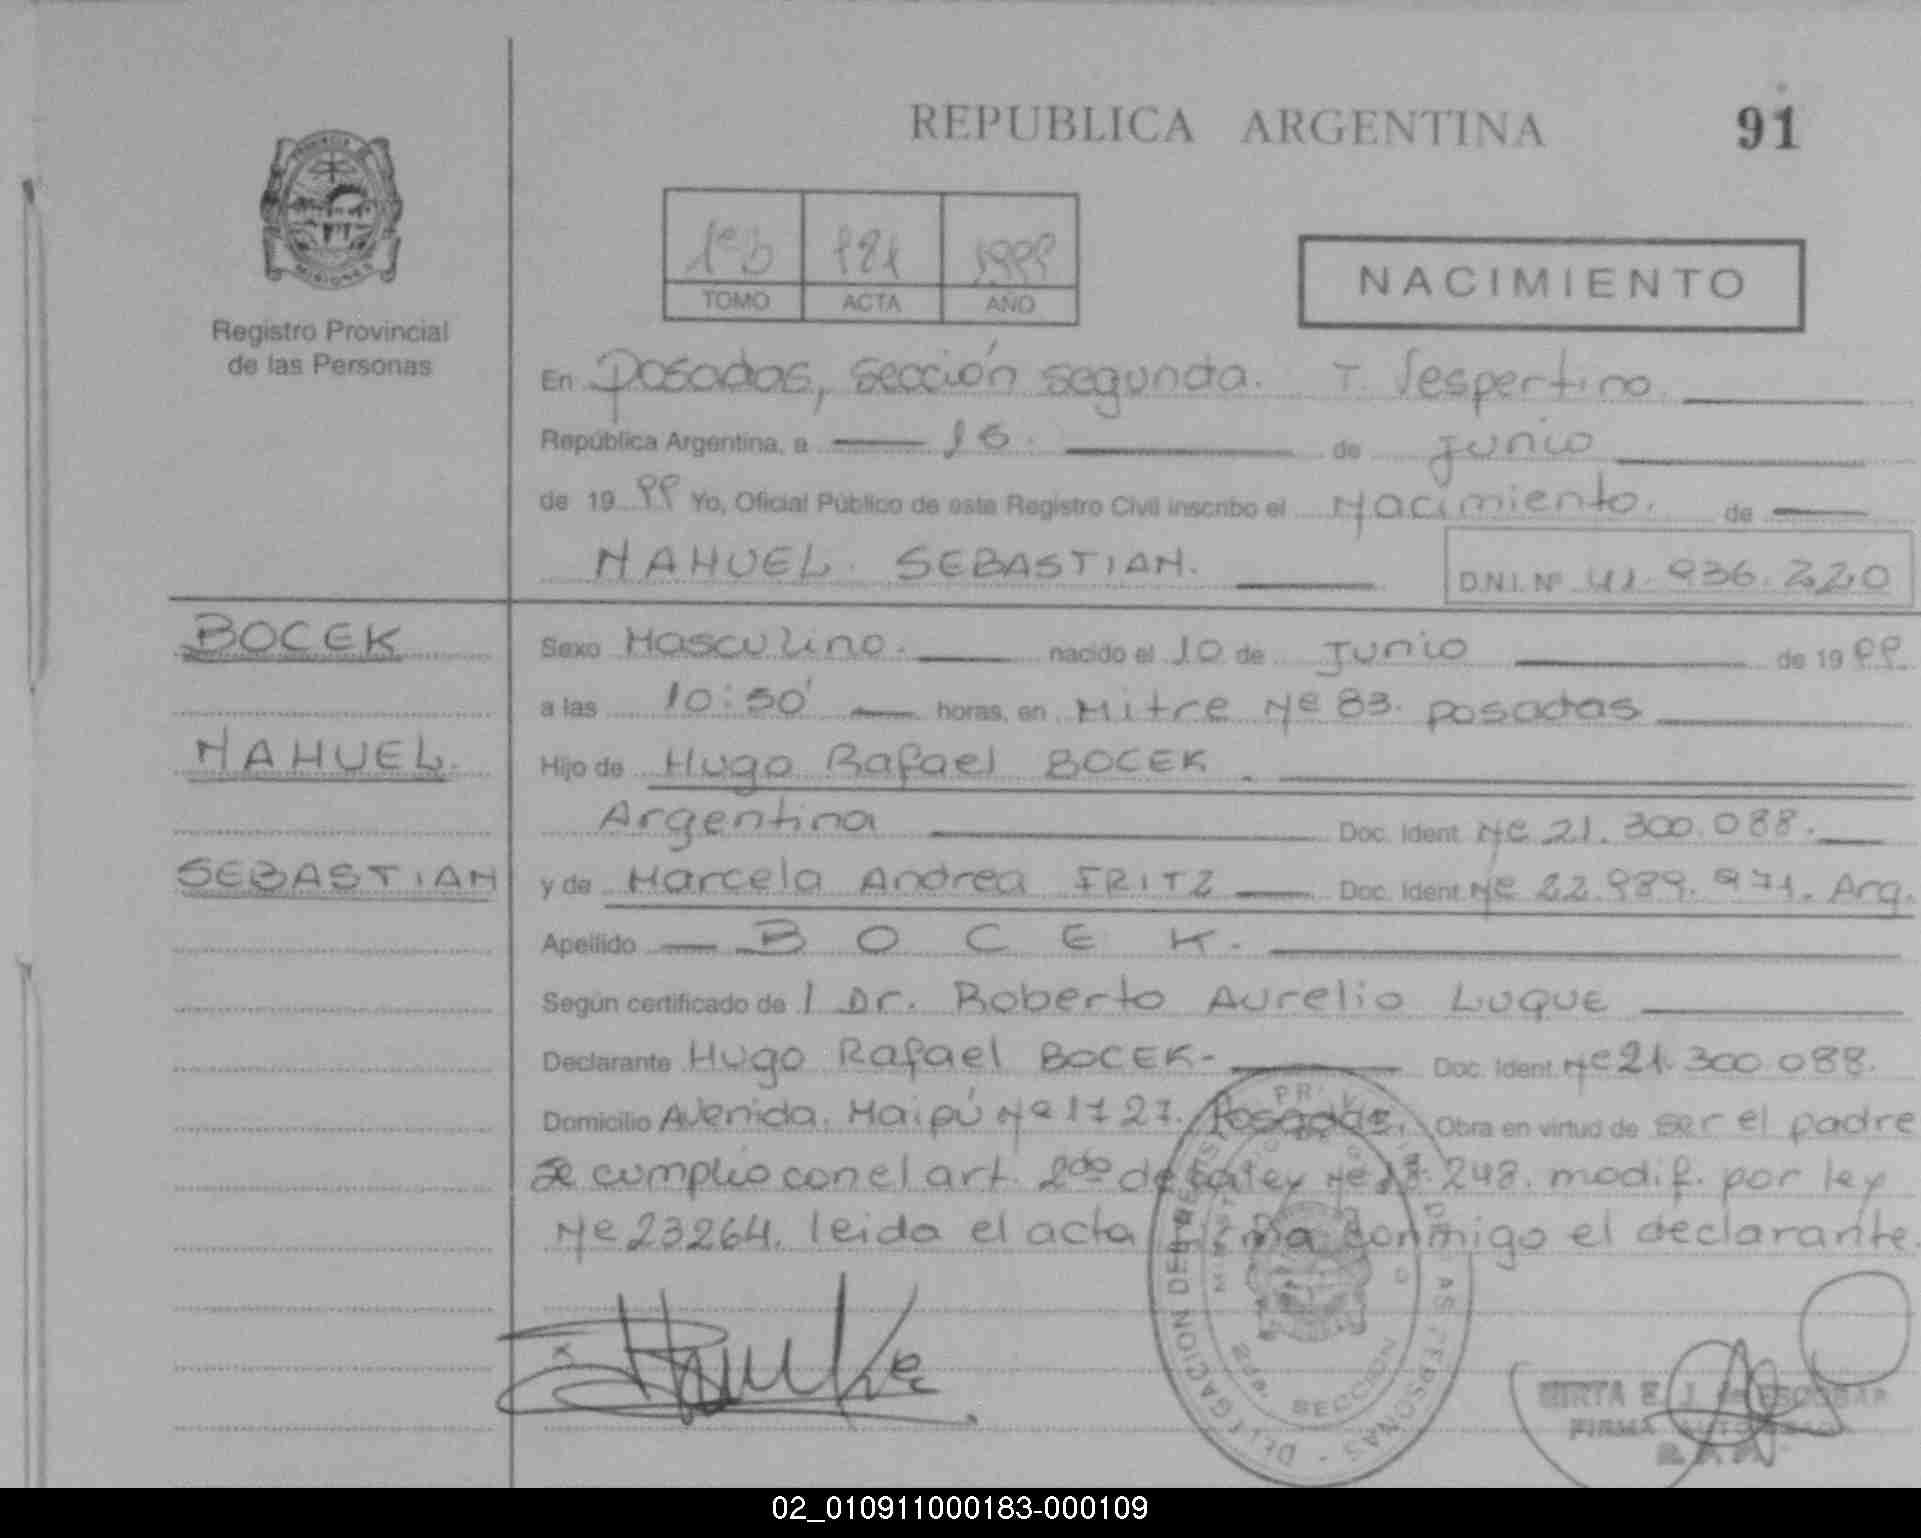 REPUBLICA ARGENTINA
91
1º b
TOMO
ACTA
1999
AÑO
NACIMIENTO
MISIONES
Registro Provincial
de las Personas
En Posadas, sección segunda. T. Vespertino.
República Argentina, a 16. de Junio
de 1999 Yo, Oficial Público de este Registro Civil inscribo el Nacimiento. de
NAHUEL SEBASTIAN.
D.N.I. Nº 41.936.220
BOCEK
NAHUEL.
SEBASTIAN
Sexo Masculino. nacido el 10 de Junio de 1999.
a las 10:50' horas, en Mitre Nº 83. Posadas
Hijo de Hugo Rafael BOCEK.
Argentina Doc. Ident. Nº 21.300.088.
y de Marcela Andrea FRITZ Doc. Ident. Nº 22.989.971. Arg.
Apellido B O C E K.
Según certificado de l Dr. Roberto Aurelio LUQUE
Declarante Hugo Rafael BOCEK- Doc. Ident. Nº 21.300.088.
Domicilio Avenida. Maipú Nº 1727. Posadas. Obra en virtud de ser el padre
Se cumplio con el art. 2do de la ley Nº 18.248. modif. por ley
Nº 23264. leida el acta firma conmigo el declarante.
DELEGACION DEL REGISTRO PROVINCIAL DE LAS PERSONAS
2da. SECCION
MIRTA E. J. de ESCOBAR
FIRMA AUTORIZADA
02_010911000183-000109